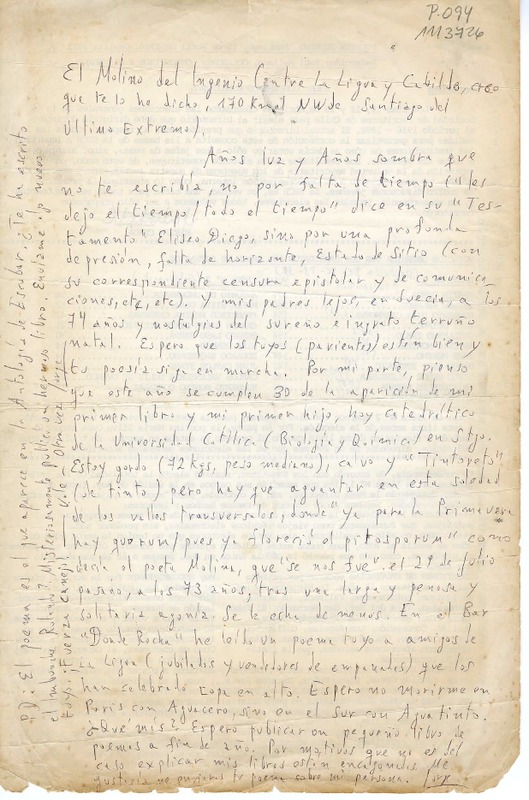 P.094
1113726
El Molino del Ingenio (entre La Ligua y Cabildo, creo
que te lo he dicho, 170 Kms al NW de Santiago del
Último Extremo).
Años luz y Años sombra que
no te escribía, no por falta de tiempo ("les
dejo el tiempo/todo el tiempo" dice en su "Tes-
tamento" Eliseo Diego, sino por una profonda
depresión, falta de horizonte, Estado de Sitio (con
su correspondiente censura epistolar y de comunica-
ciones, etc, etc). Y mis padres lejos, en Suecia, a los
74 años y nostalgias del sureño e ingrato terruño
natal. Espero que los tuyos (parientes) estén bien y
tu poesía siga en marcha. Por mi parte, pienso
que este año se cumplen 30 de la aparición de mi
primer libro y mi primer hijo, hoy catedrático
de la Universidad Católica (Biología y Química) en Stgo.
Estoy gordo (72 kgs, peso mediano), calvo y "Tintoreto"
(de tinto) pero hay que aguantar en esta soledad
de los valles transversales, donde "ya para la Primavera
hay quorum/pues ya floreció el pitosporum" como
decía el poeta Molina, que "se nos fue" el 29 de julio
pasado, a los 73 años, tras una larga y penosa y
solitaria agonía. Se le echa de menos. En el Bar
"Donde Rocha" he leído un poema tuyo a amigos de
La Ligua (jubilados y vendedores de empanadas) que los
han celebrado copa en alto. Espero no morirme en
París con Aguacero, sino en el sur con Aguatinto.
¿Qué más? Espero publicar un pequeño libro de
poemas a fin de año. Por motivos que no es del
caso explicar mis libros están encajonados. Me
gustaría me enviaras tu poema sobre mi persona. Jorge
PD: El poema es el que aparece en la Antología de Escobar. ¿Te ha escrito
el Rolando? Misteriosamente publicó un hermoso libro. Envíame lo nuevo
tuyo. ¡Fuerza canejo! Vale - Otra vez Jorge